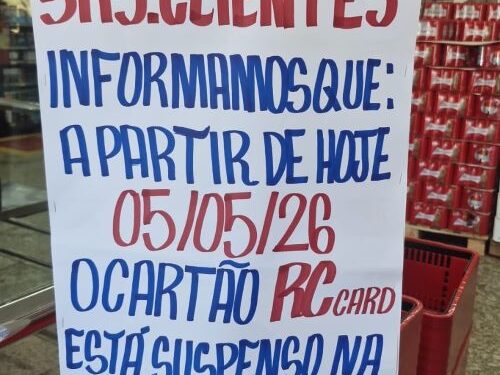 SRS.CLIENTES
INFORMAMOS QUE:
A PARTIR DE HOJE
05/05/26
O CARTÃO RC CARD
ESTÁ SUSPENSO NA